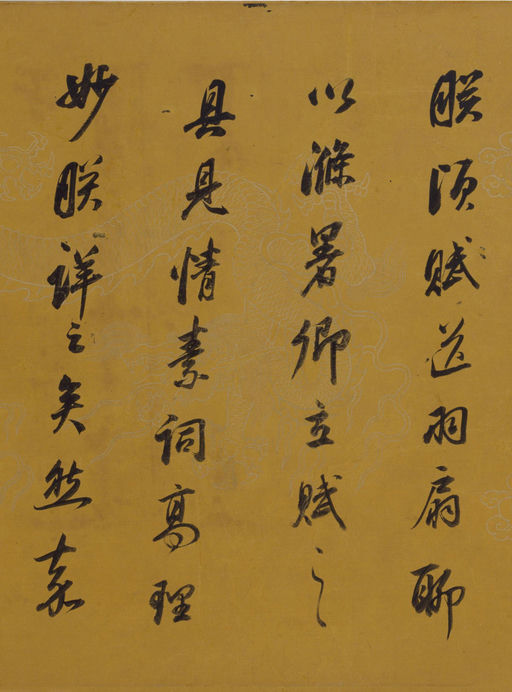 朕頃賦道羽扇聊
以滌暑卿立賦之
具見情素詞高理
妙朕詳之矣然嘉